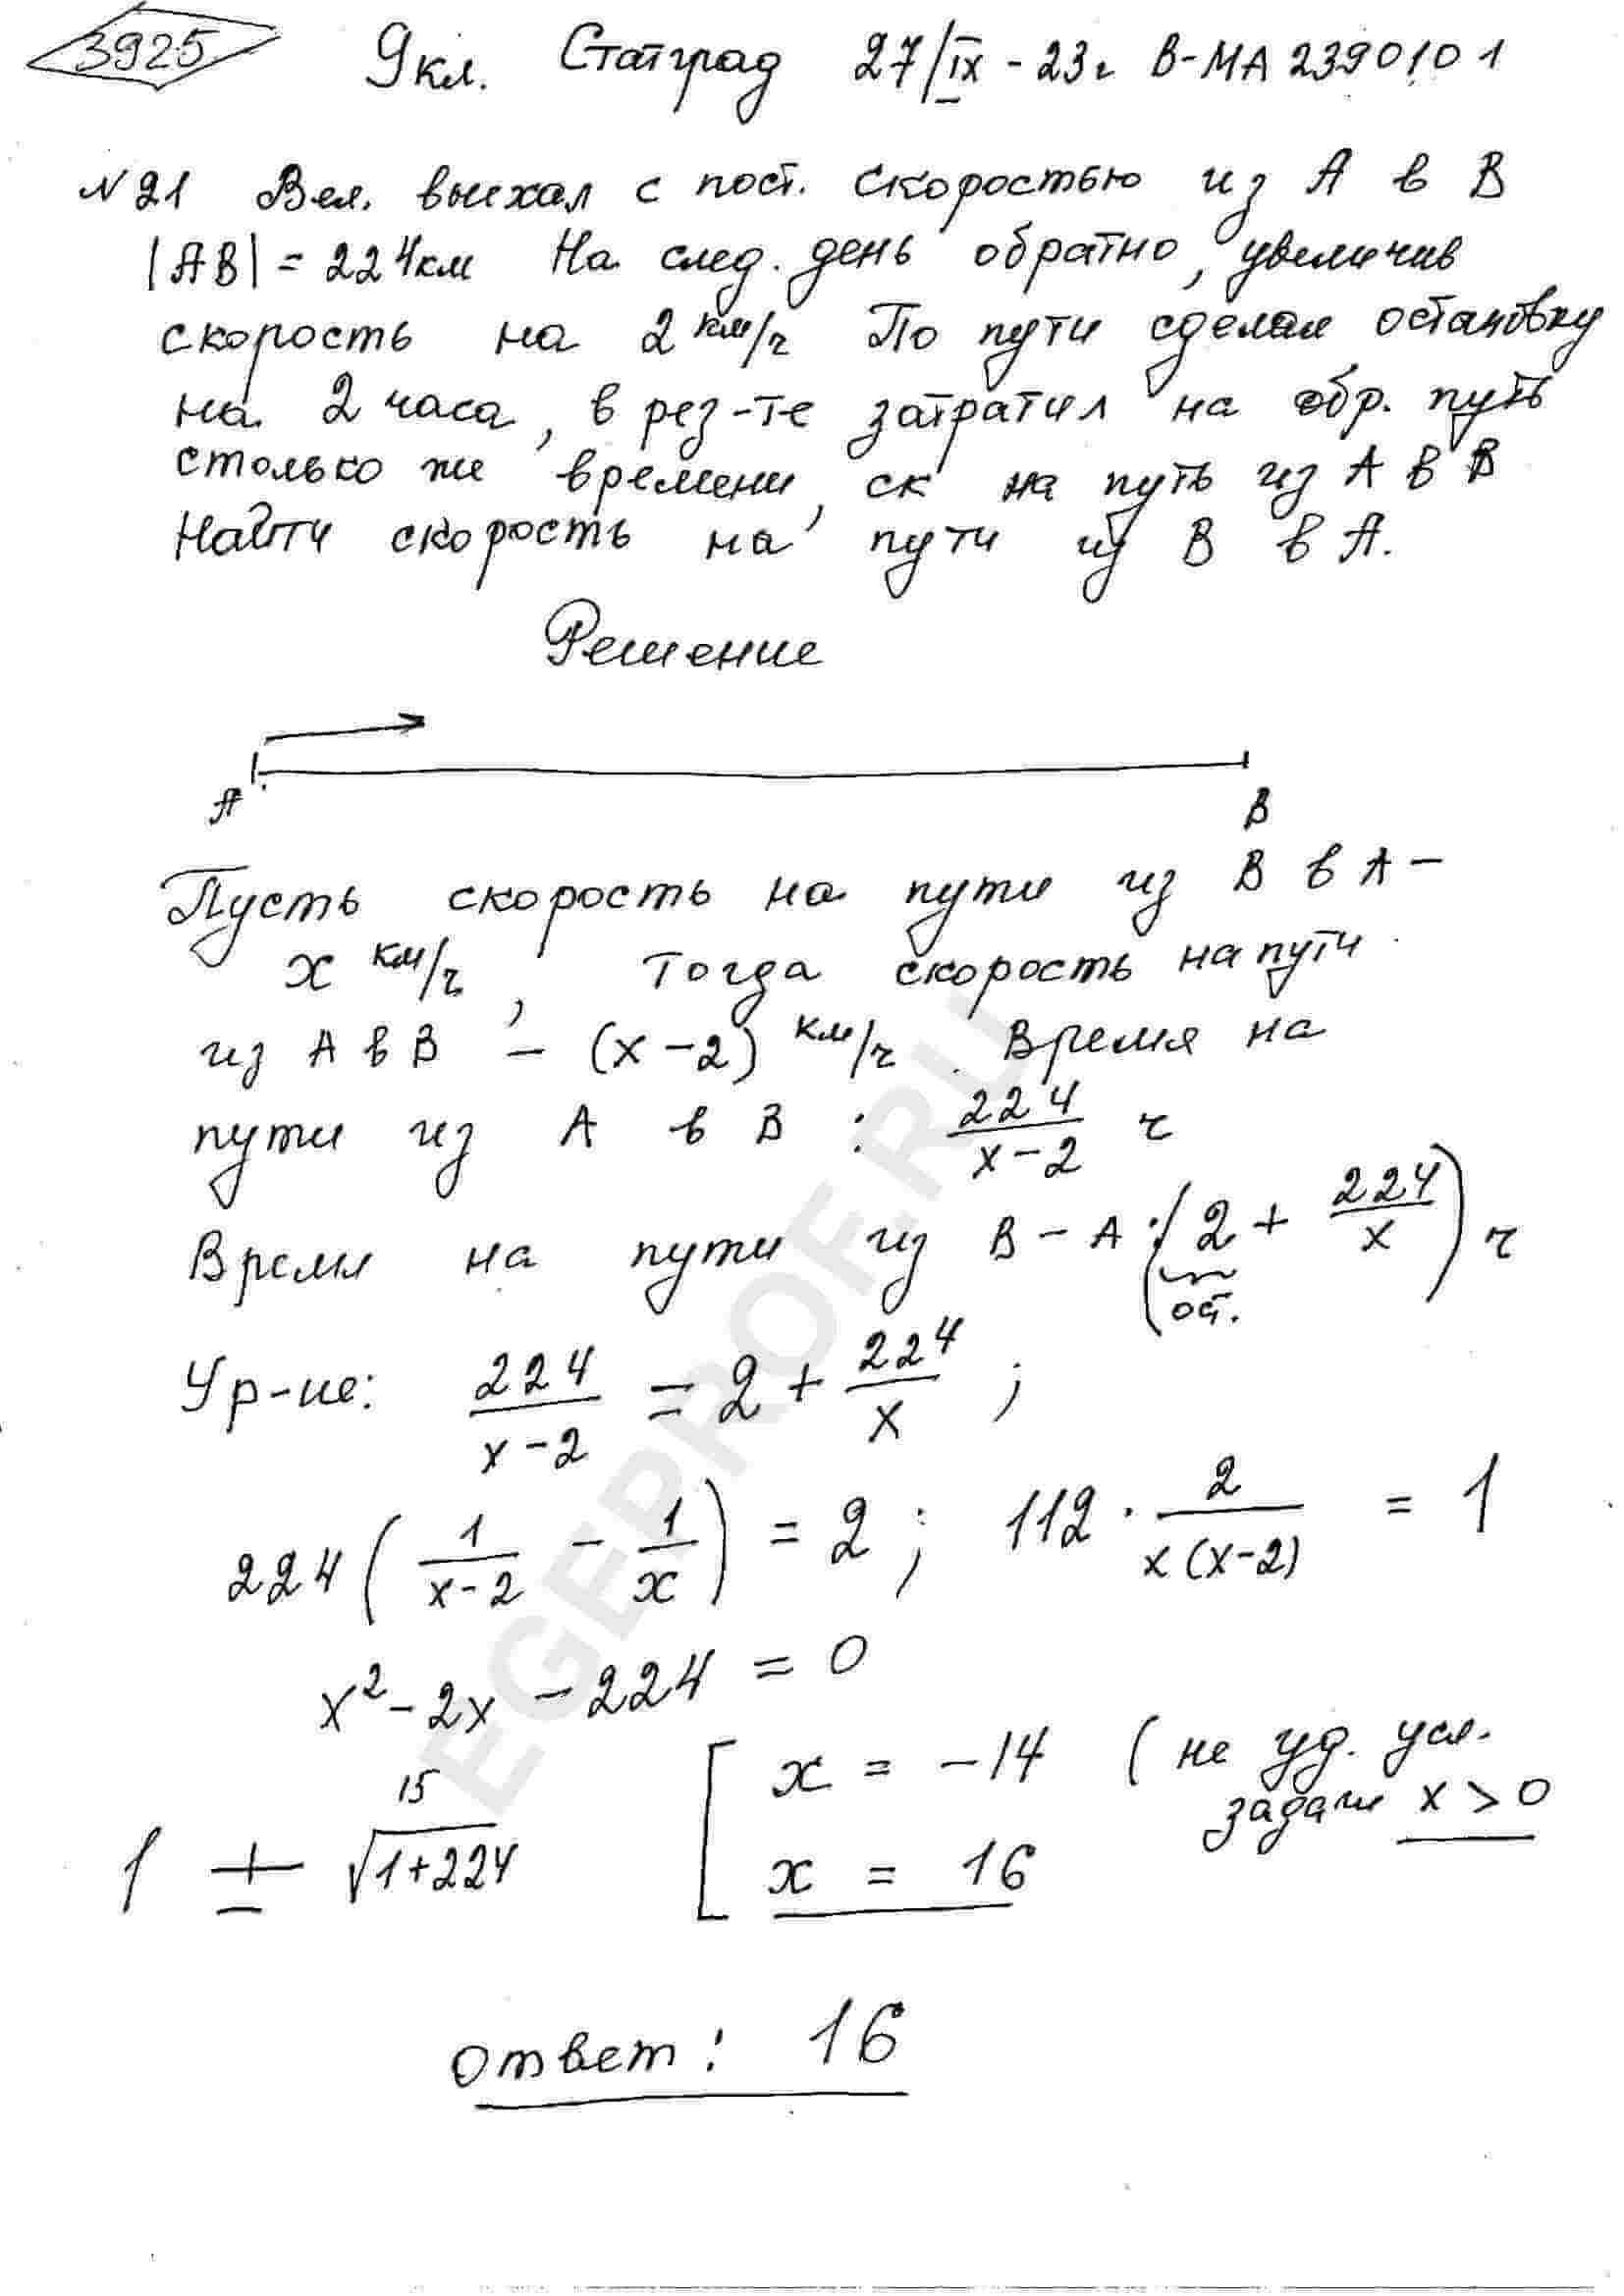 3925 9 кл. Статград 27/IX - 23г В-МА2390101
№21 Вел. выехал с пост. скоростью из А в В
|AB| = 224 км На след. день обратно, увеличив
скорость на 2 км/ч По пути сделал остановку
на 2 часа, в рез-те затратил на обр. путь
столько же времени, ск на путь из А в В
Найти скорость на пути из В в А.
Решение
А В
Пусть скорость на пути из В в А –
x км/ч, тогда скорость на пути
из А в В – (x – 2) км/ч. Время на
пути из А в В : 224/(x – 2) ч
Время на пути из В – А : (2 + 224/x) ч
ост.
Ур-ие: 224/(x – 2) = 2 + 224/x ;
224 (1/(x – 2) – 1/x) = 2 ; 112 · 2/(x(x–2)) = 1
x² – 2x – 224 = 0
15
1 ± √(1+224)
[ x = –14 (не уд. усл.
задачи x > 0
x = 16
Ответ: 16
EGEPROF.RU